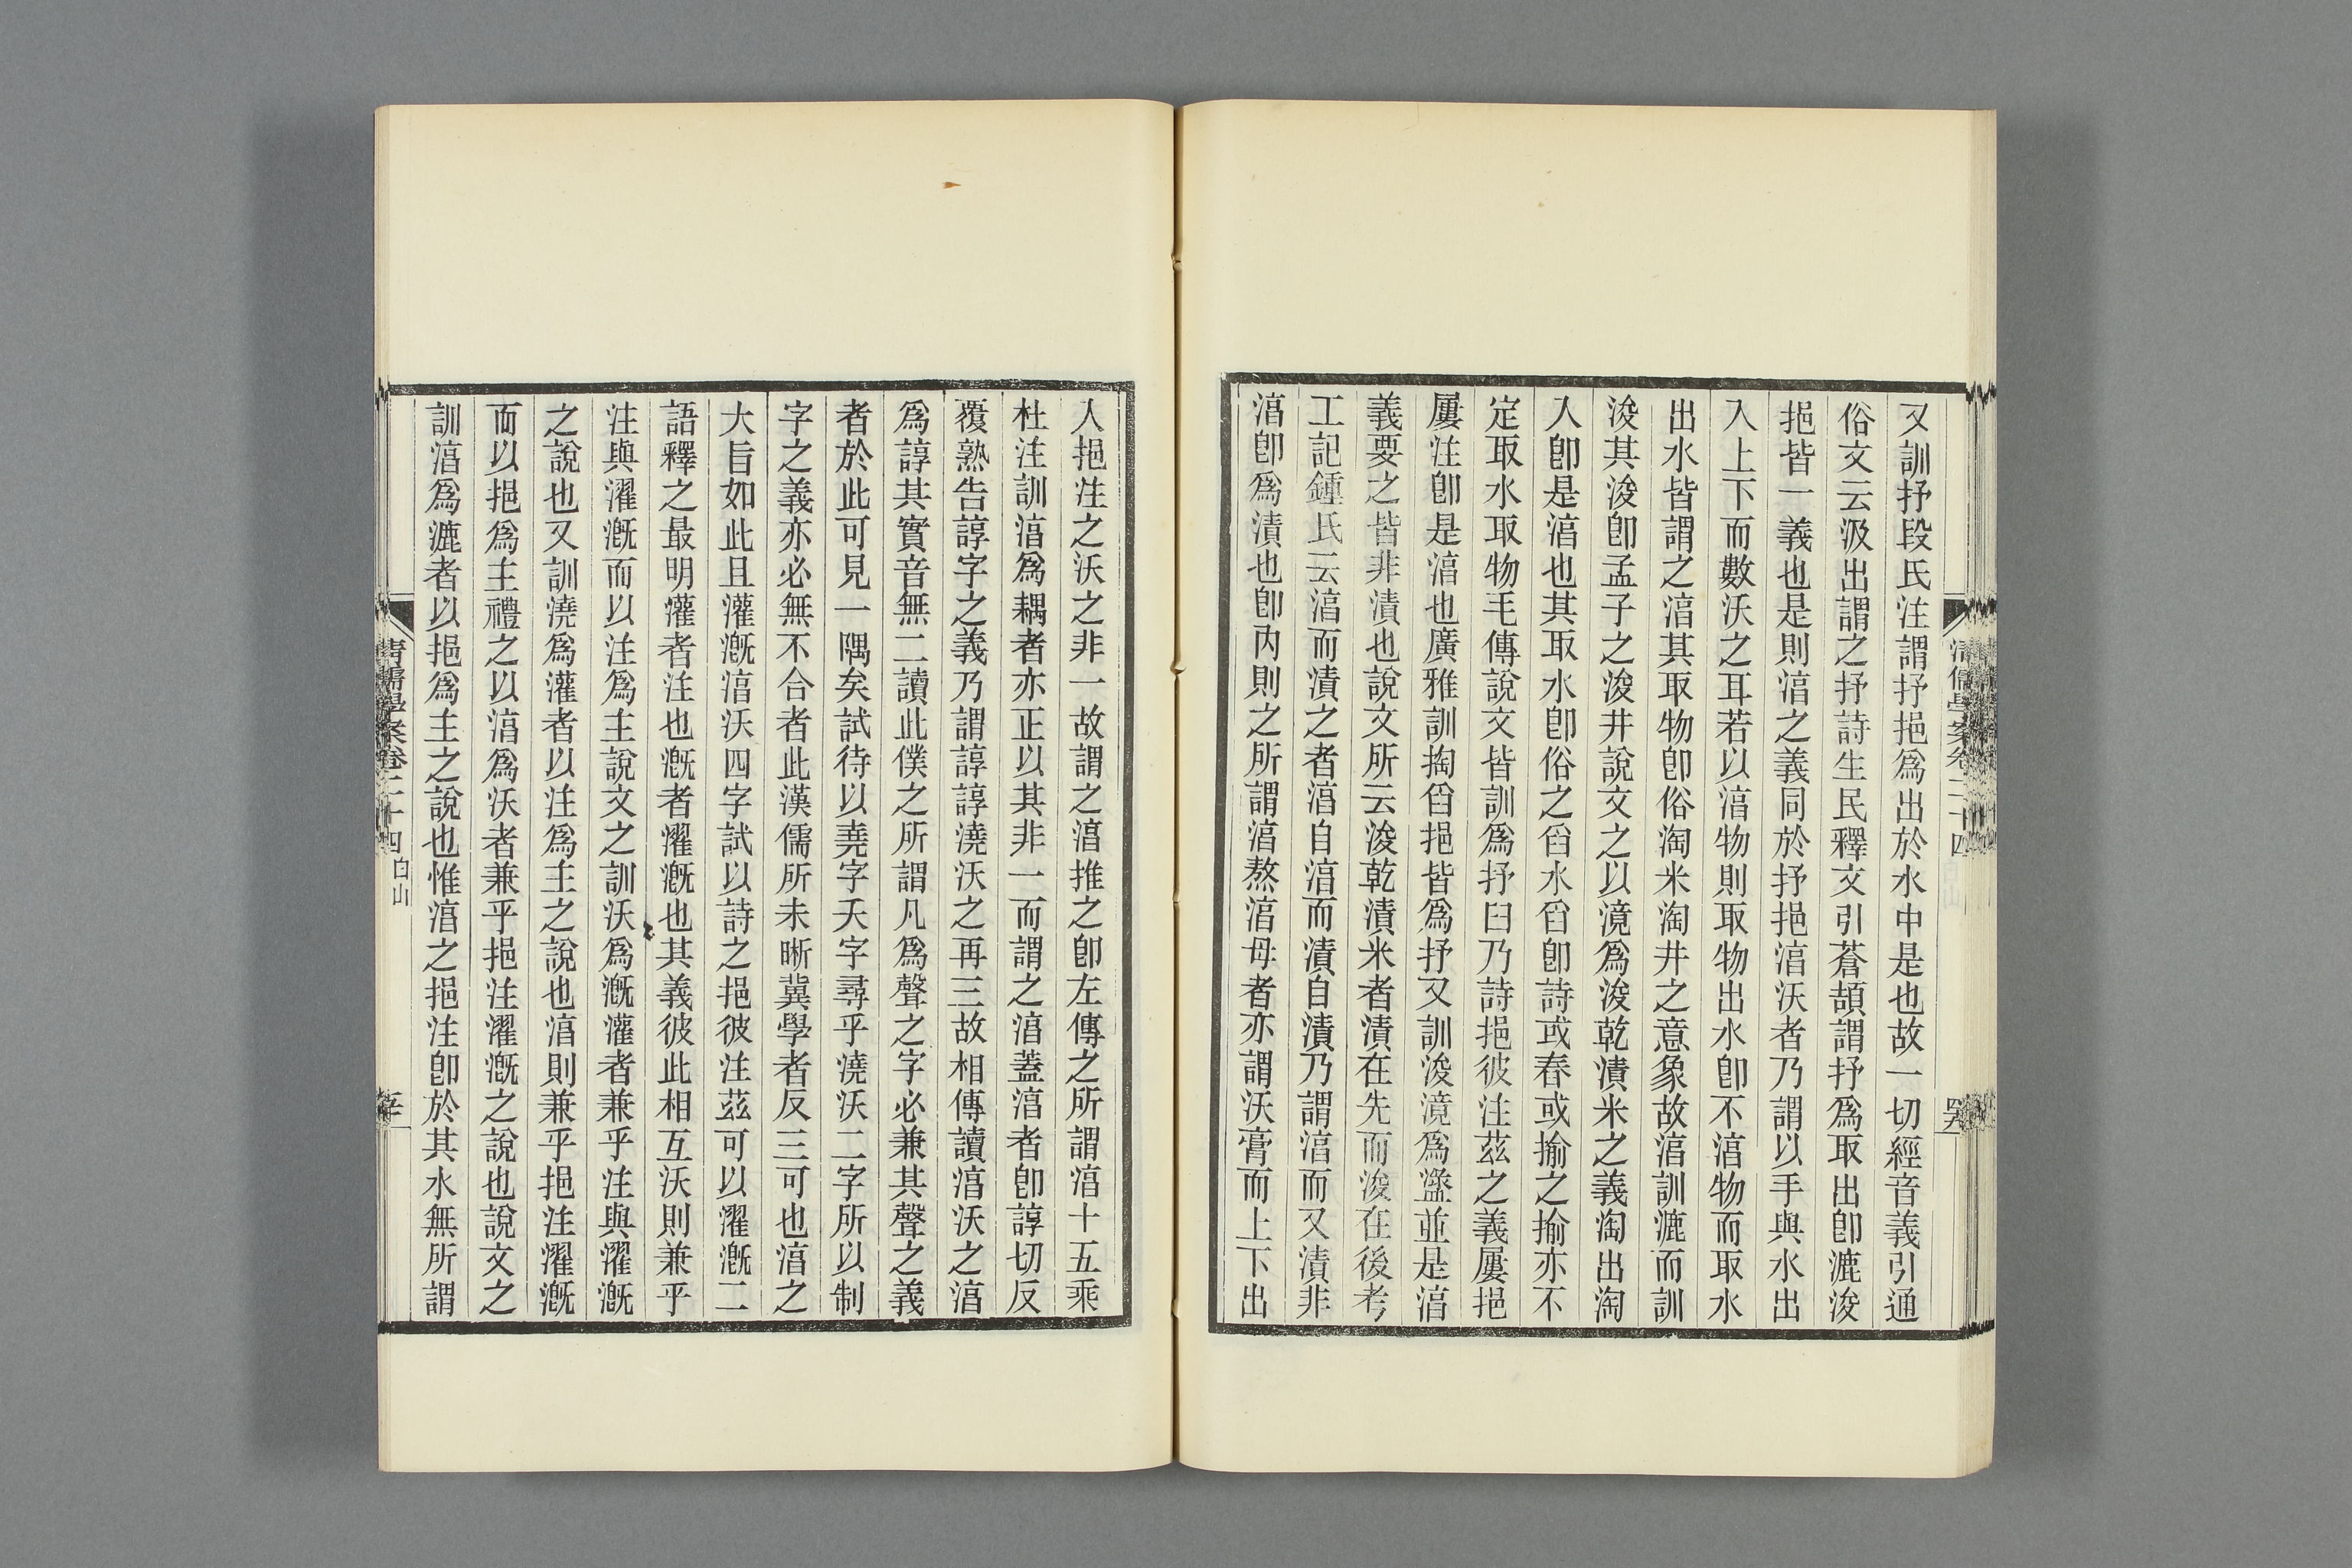 又訓抒段氏注謂抒挹爲出於水中是也故一切經音義引通
俗文云汲出謂之抒詩生民釋文引蒼頡謂抒爲取出卽漉浚
挹皆一義也是則湻之義同於抒挹湻沃者乃謂以手與水出
入上下而數沃之耳若以湻物則取物出水卽不湻物而取水
出水皆謂之湻其取物卽俗淘米淘井之意象故湻訓漉而訓
浚其浚卽孟子之浚井說文之以滰爲浚乾漬米之義淘出淘
入卽是湻也其取水卽俗之舀水舀卽詩或舂或揄之揄亦不
定取水取物毛傳說文皆訓爲抒臼乃詩挹彼注茲之義屢挹
屢注卽是湻也廣雅訓掏舀挹皆爲抒又訓浚滰爲盪並是湻
義要之皆非漬也說文所云浚乾漬米者漬在先而浚在後考
工記鍾氏云湻而漬之者湻自湻而漬自漬乃謂湻而又漬非
湻卽爲漬也卽內則之所謂湻熬湻母者亦謂沃膏而上下出
入挹注之沃之非一故謂之湻推之卽左傳之所謂湻十五乘
杜注訓湻爲耦者亦正以其非一而謂之湻蓋湻者卽諄切反
覆熟告諄字之義乃謂諄諄澆沃之再三故相傳讀湻沃之湻
爲諄其實音無二讀此僕之所謂凡爲聲之字必兼其聲之義
者於此可見一隅矣試待以堯字夭字尋乎澆沃二字所以制
字之義亦必無不合者此漢儒所未晰冀學者反三可也湻之
大旨如此且灌漑湻沃四字試以詩之挹彼注茲可以濯漑二
語釋之最明灌者注也漑者濯漑也其義彼此相互沃則兼乎
注與濯漑而以注爲主說文之訓沃爲漑灌者兼乎注與濯漑
之說也又訓澆爲灌者以注爲主之說也湻則兼乎挹注濯漑
而以挹爲主禮之以湻爲沃者兼乎挹注濯漑之說也說文之
訓湻爲漉者以挹爲主之說也惟湻之挹注卽於其水無所謂
清儒學案卷二十四 白山